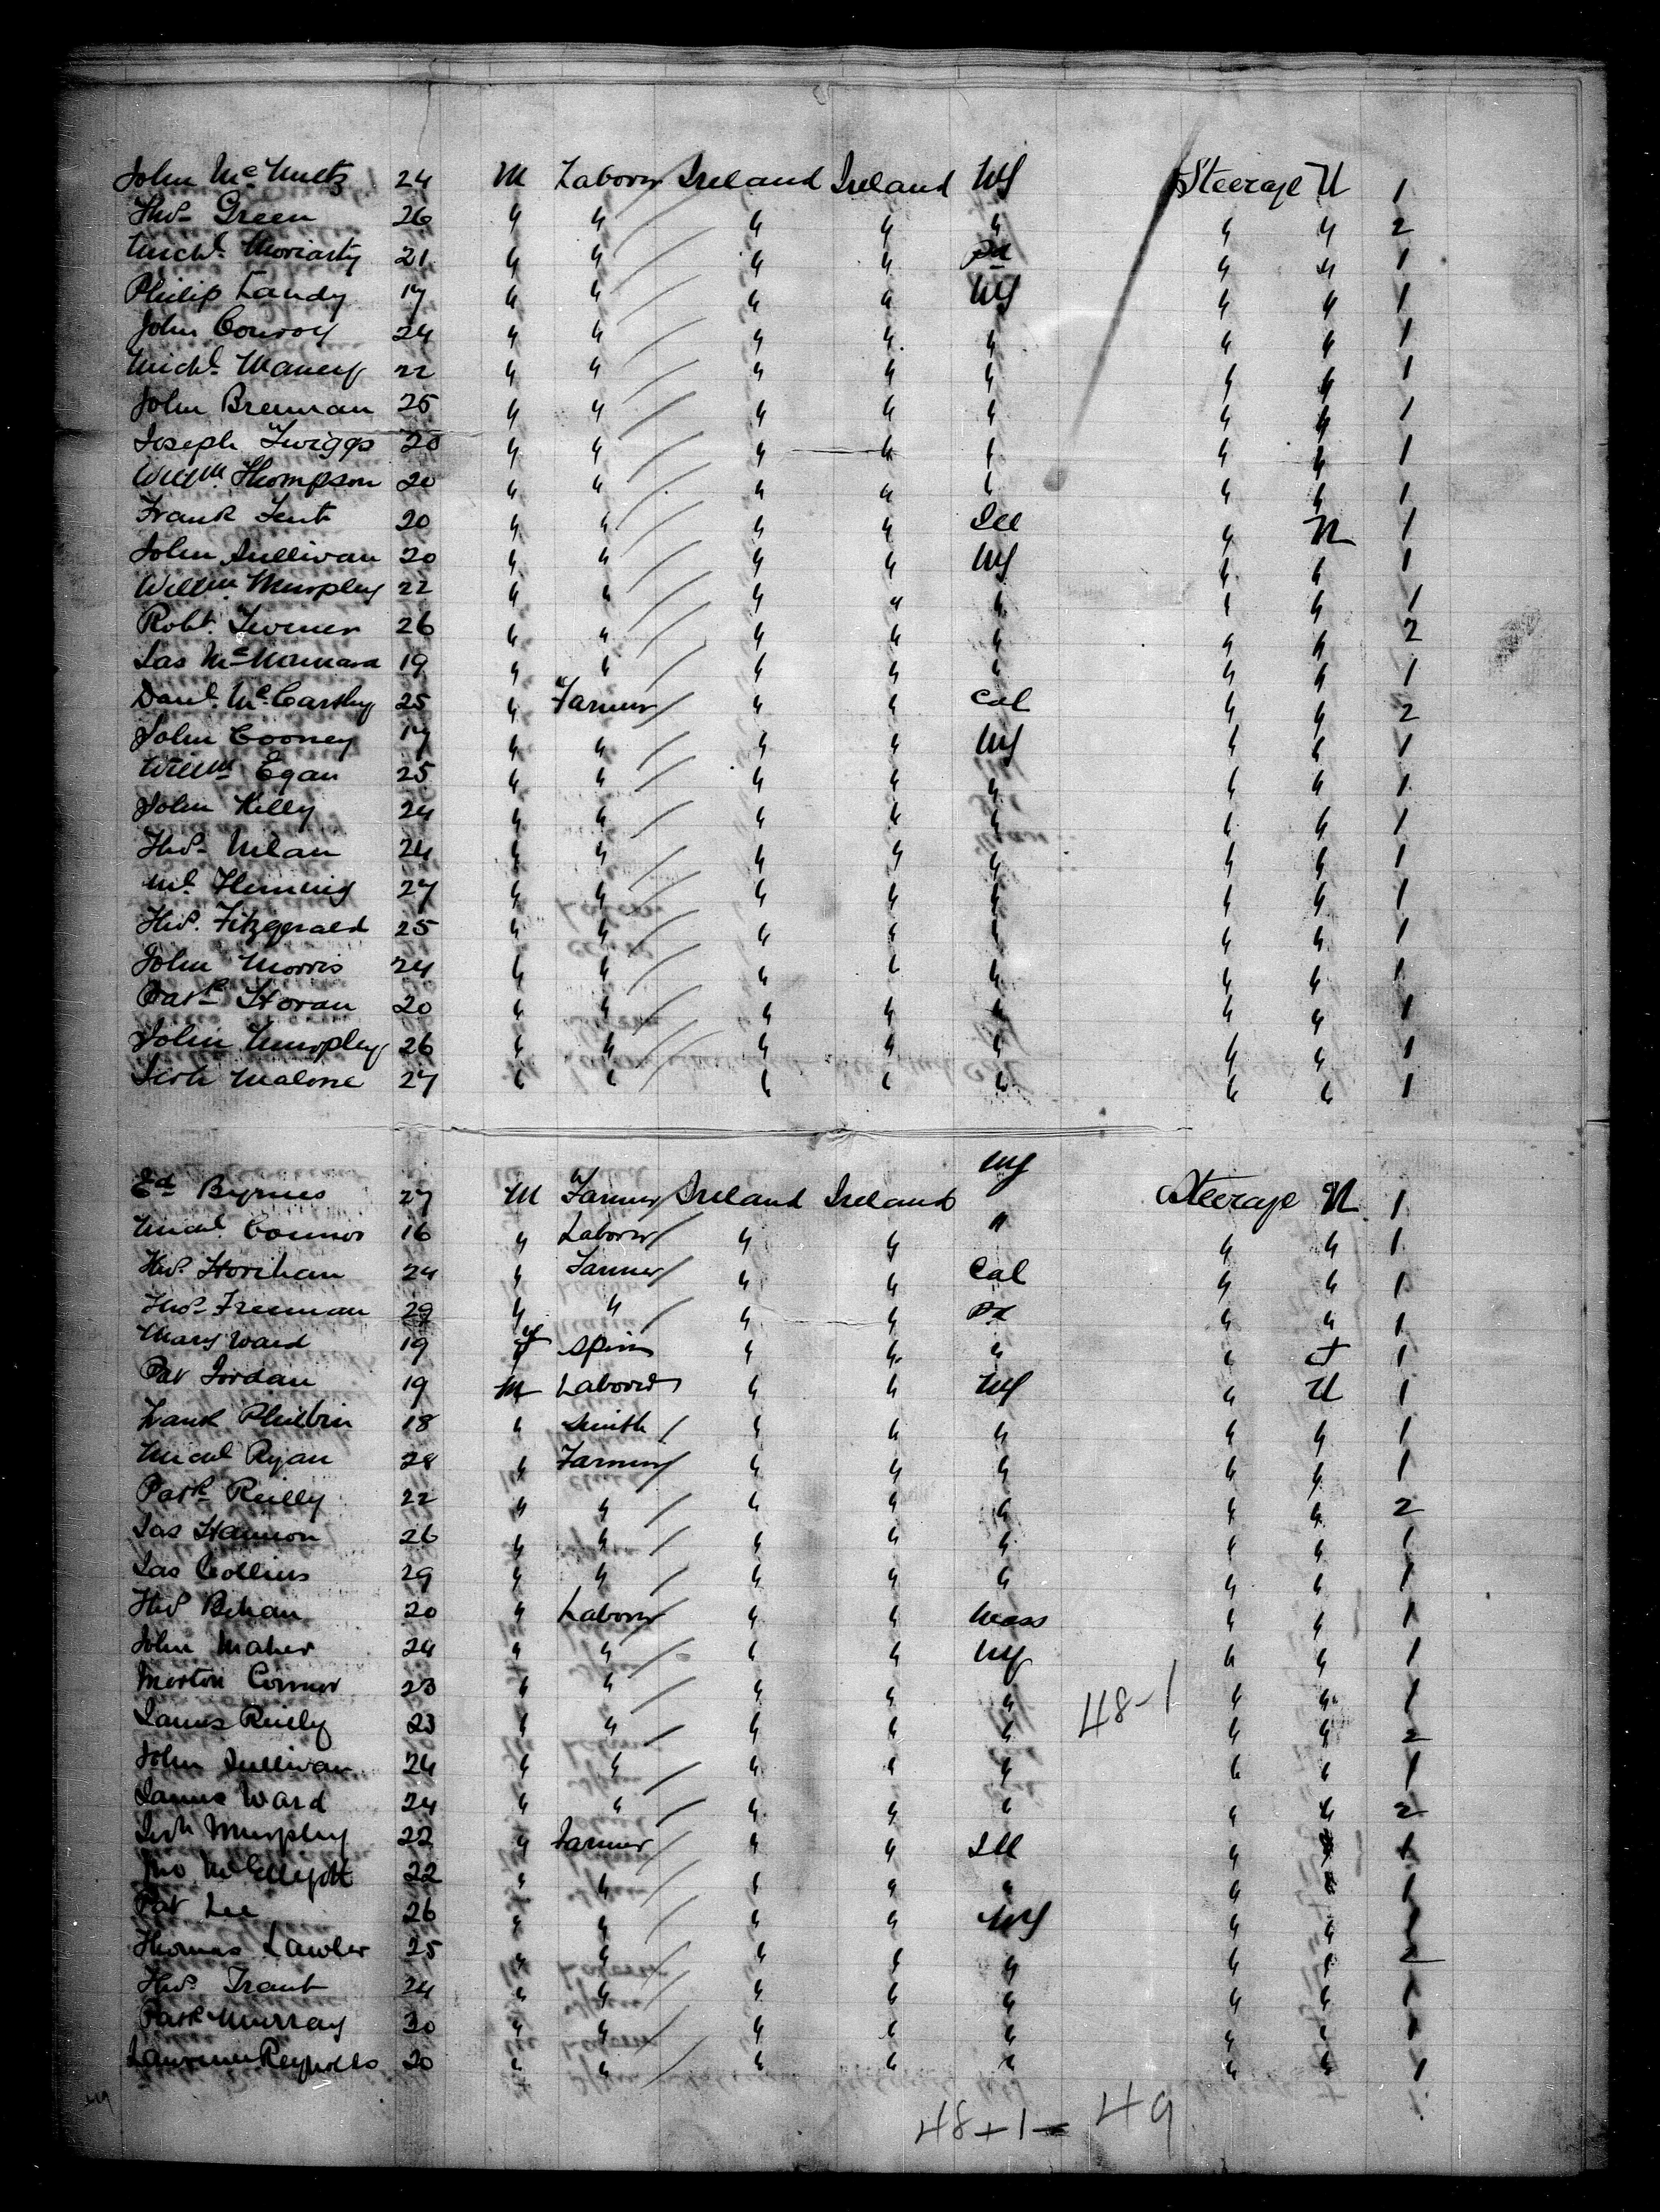 John Mc 24 M Laborer Ireland Ireland NY Steerage U 1
Thos Green 26 " " " " " " " 2
Michl Moriarty 21 " " " " Pa " " 1
Philip Landy 17 " " " " NY " " 1
John Conroy 24 " " " " " " " 1
Michl 22 " " " " " " " 1
John Brennan 25 " " " " " " " 1
Joseph Twiggs 20 " " " " " " " 1
Willm Thompson 20 " " " " " " " 1
Frank 20 " " " " Ill " N 1
John Sullivan 20 " " " " NY " " 1
Willm Murphy 22 " " " " " " " 1
Robt 26 " " " " " " " 2
Jas McNamara 19 " " " " " " " 1
Danl McCarthy 25 " Farmer " " Cal " " 2
John Cooney 17 " " " " NY " " 1
Willm Egan 25 " " " " " " " 1
John Kelly 24 " " " " " " " 1
Thos 24 " " " " " " " 1
Ml Fleming 27 " " " " " " " 1
Thos Fitzgerald 25 " " " " " " " 1
John Morris 24 " " " " " " " 1
Patk Horan 20 " " " " " " " 1
John Murphy 26 " " " " " " " 1
Jerh Malone 27 " " " " " " " 1
Ed Byrnes 27 M Farmer Ireland Ireland NY Steerage N 1
Michl Connor 16 " Laborer " " " " " 1
Thos Horihan 24 " Farmer " " Cal " " 1
Thos Freeman 29 " " " " Pa " " 1
Mary Ward 19 f Spin " " " " J 1
Pat Jordan 19 M Laborer " " NY " U 1
Frank Philbin 18 " Smith " " " " " 1
Michl Ryan 28 " Farmer " " " " " 1
Patk Reilly 22 " " " " " " " 2
Jas Hannon 26 " " " " " " " 1
Jas Collins 29 " " " " " " " 1
Thos Behan 20 " Laborer " " Mass " " 1
John Maher 24 " " " " NY " " 1
Morton Connor 23 " " " " " " " 1
48-1
James Reilly 23 " " " " " " " 2
John Sullivan 24 " " " " " " " 1
James Ward 24 " " " " " " " 2
Jerh Murphy 22 " Farmer " " Ill " " 1
Jno McElligott 22 " " " " " " " 1
Pat Lee 26 " " " " NY " "
Thomas Lawler 25 " " " " " " " 2
Thos Trant 24 " " " " " " " 1
Patk Murray 30 " " " " " " " 1
Lawrence Reynolds 20 " " " " " " " 1
48+1= 49